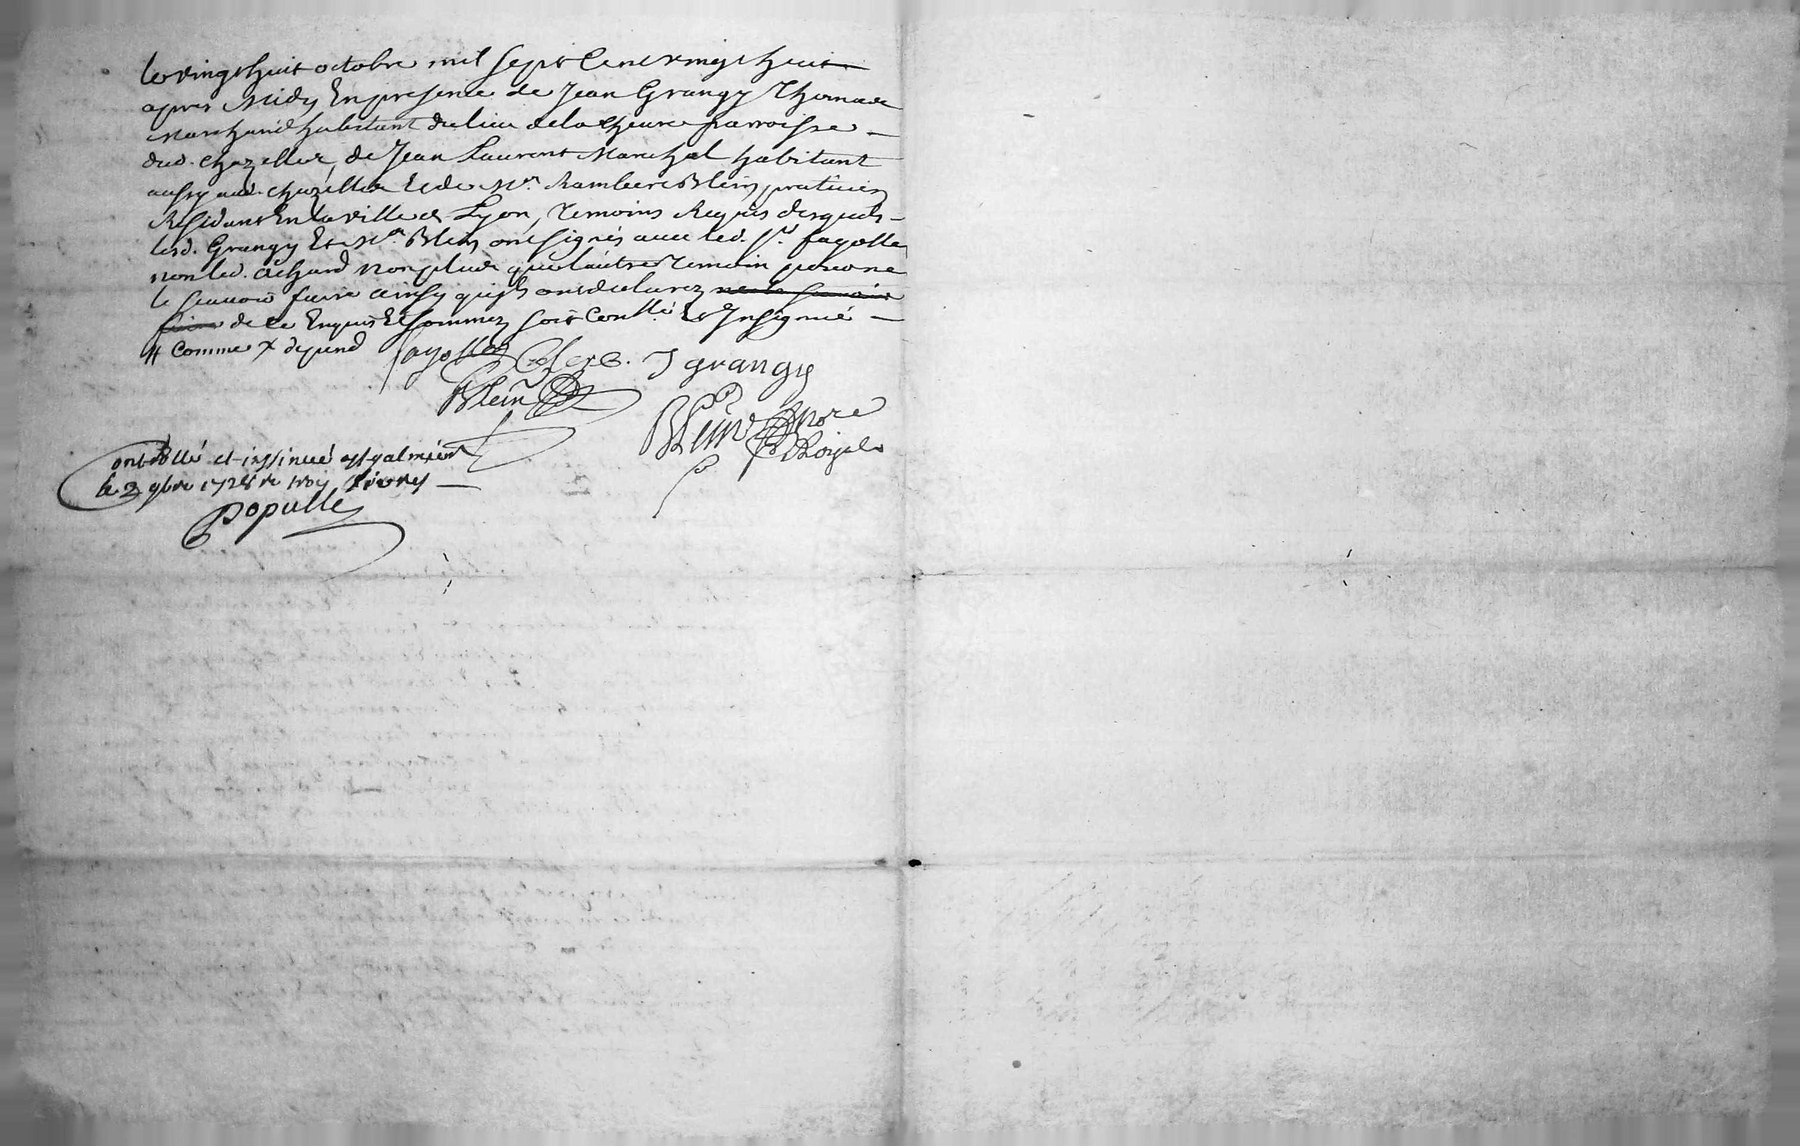 le vingt huit octobre mil sept cent vingt huit
apres Midy En presence de Jean Grangy
marchand habitant du lieu de la parroisse
dud. chazelles, de Jean Laurent Marechal habitant
aussy aud. chazelles Et de Mr. Rambert Blein praticien
Residant En la ville de Lyon, temoins Requis desquels
lesd. Grangy Et Mr. Blein ont signés avec led. Sr. fayolle
non led. Richard non plus que l'autre temoin pour ne
le scavoir faire ainsy qu'ils ont declarez ne le scavoir
faire de ce Enquis Et sommez soit Contllé Et Insignué
# Comme depend
fayolle Clerc. J grangy
Blein
Blein Nore
Royal
Controllé et insinué a st galmier
le 3 9bre 1728 Re troy livres
Populle